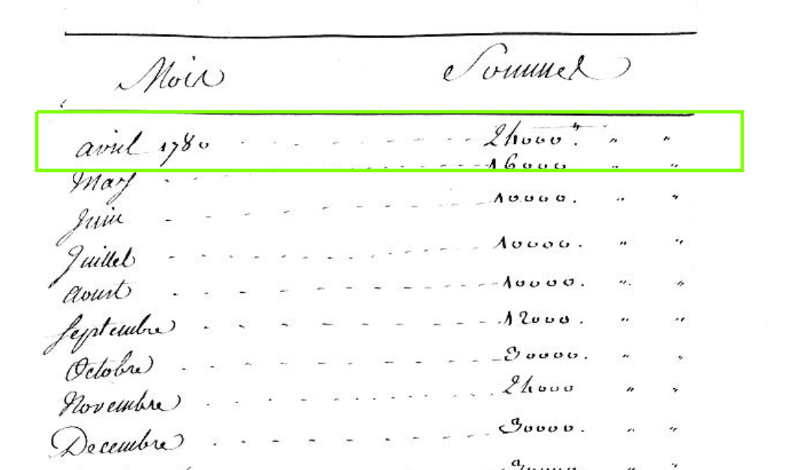 Mois Sommes
avril 1780 - - - - 24000. " "
May - - - - 16000 " "
Juin - - - - 10000. " "
Juillet - - - - 10000. " "
Aoust - - - - 10000. " "
Septembre - - - - 12000. " "
Octobre - - - - 30000. " "
Novembre - - - - 24000 " "
Decembre - - - - 30000. " "